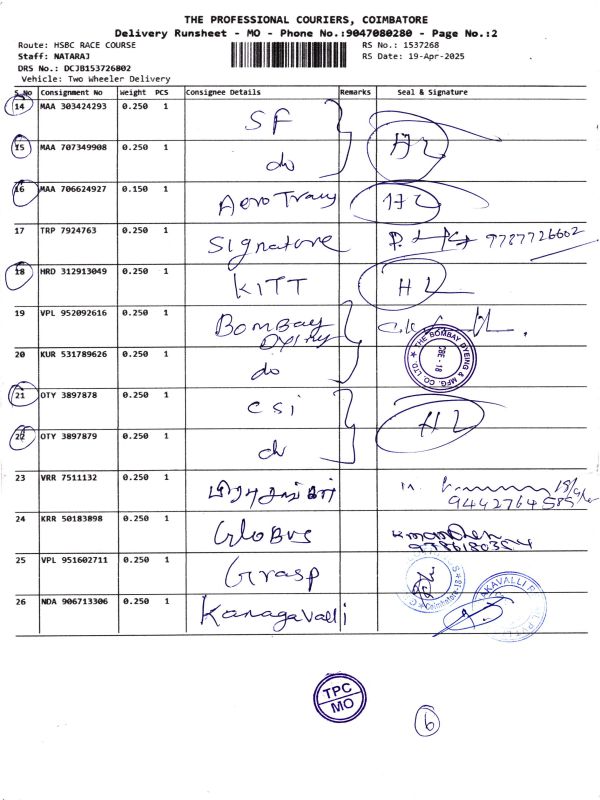 THE PROFESSIONAL COURIERS, COIMBATORE
Delivery Runsheet - MO - Phone No.:9047080280 - Page No.:2
Route: HSBC RACE COURSE RS No.: 1537268
Staff: NATARAJ RS Date: 19-Apr-2025
DRS No.: DCJB153726802
Vehicle: Two Wheeler Delivery
S.No Consignment No Weight PCS Consignee Details Remarks Seal & Signature
14 MAA 303424293 0.250 1 SF
15 MAA 707349908 0.250 1 do HL
16 MAA 706624927 0.150 1 AeroTrans
17 TRP 7924763 0.250 1 Signature 9787726602
18 HRD 312913049 0.250 1 KITT HL
19 VPL 952092616 0.250 1 Bombay Dyeing
20 KUR 531789626 0.250 1 do THE BOMBAY DYEING & MFG. CO. LTD. CBE - 18
21 OTY 3897878 0.250 1 csi HL
22 OTY 3897879 0.250 1 do
23 VRR 7511132 0.250 1
24 KRR 50183898 0.250 1 Globus
25 VPL 951602711 0.250 1 Grasp Coimbatore-18
26 NDA 906713306 0.250 1 Kanagavalli
TPC
MO
6